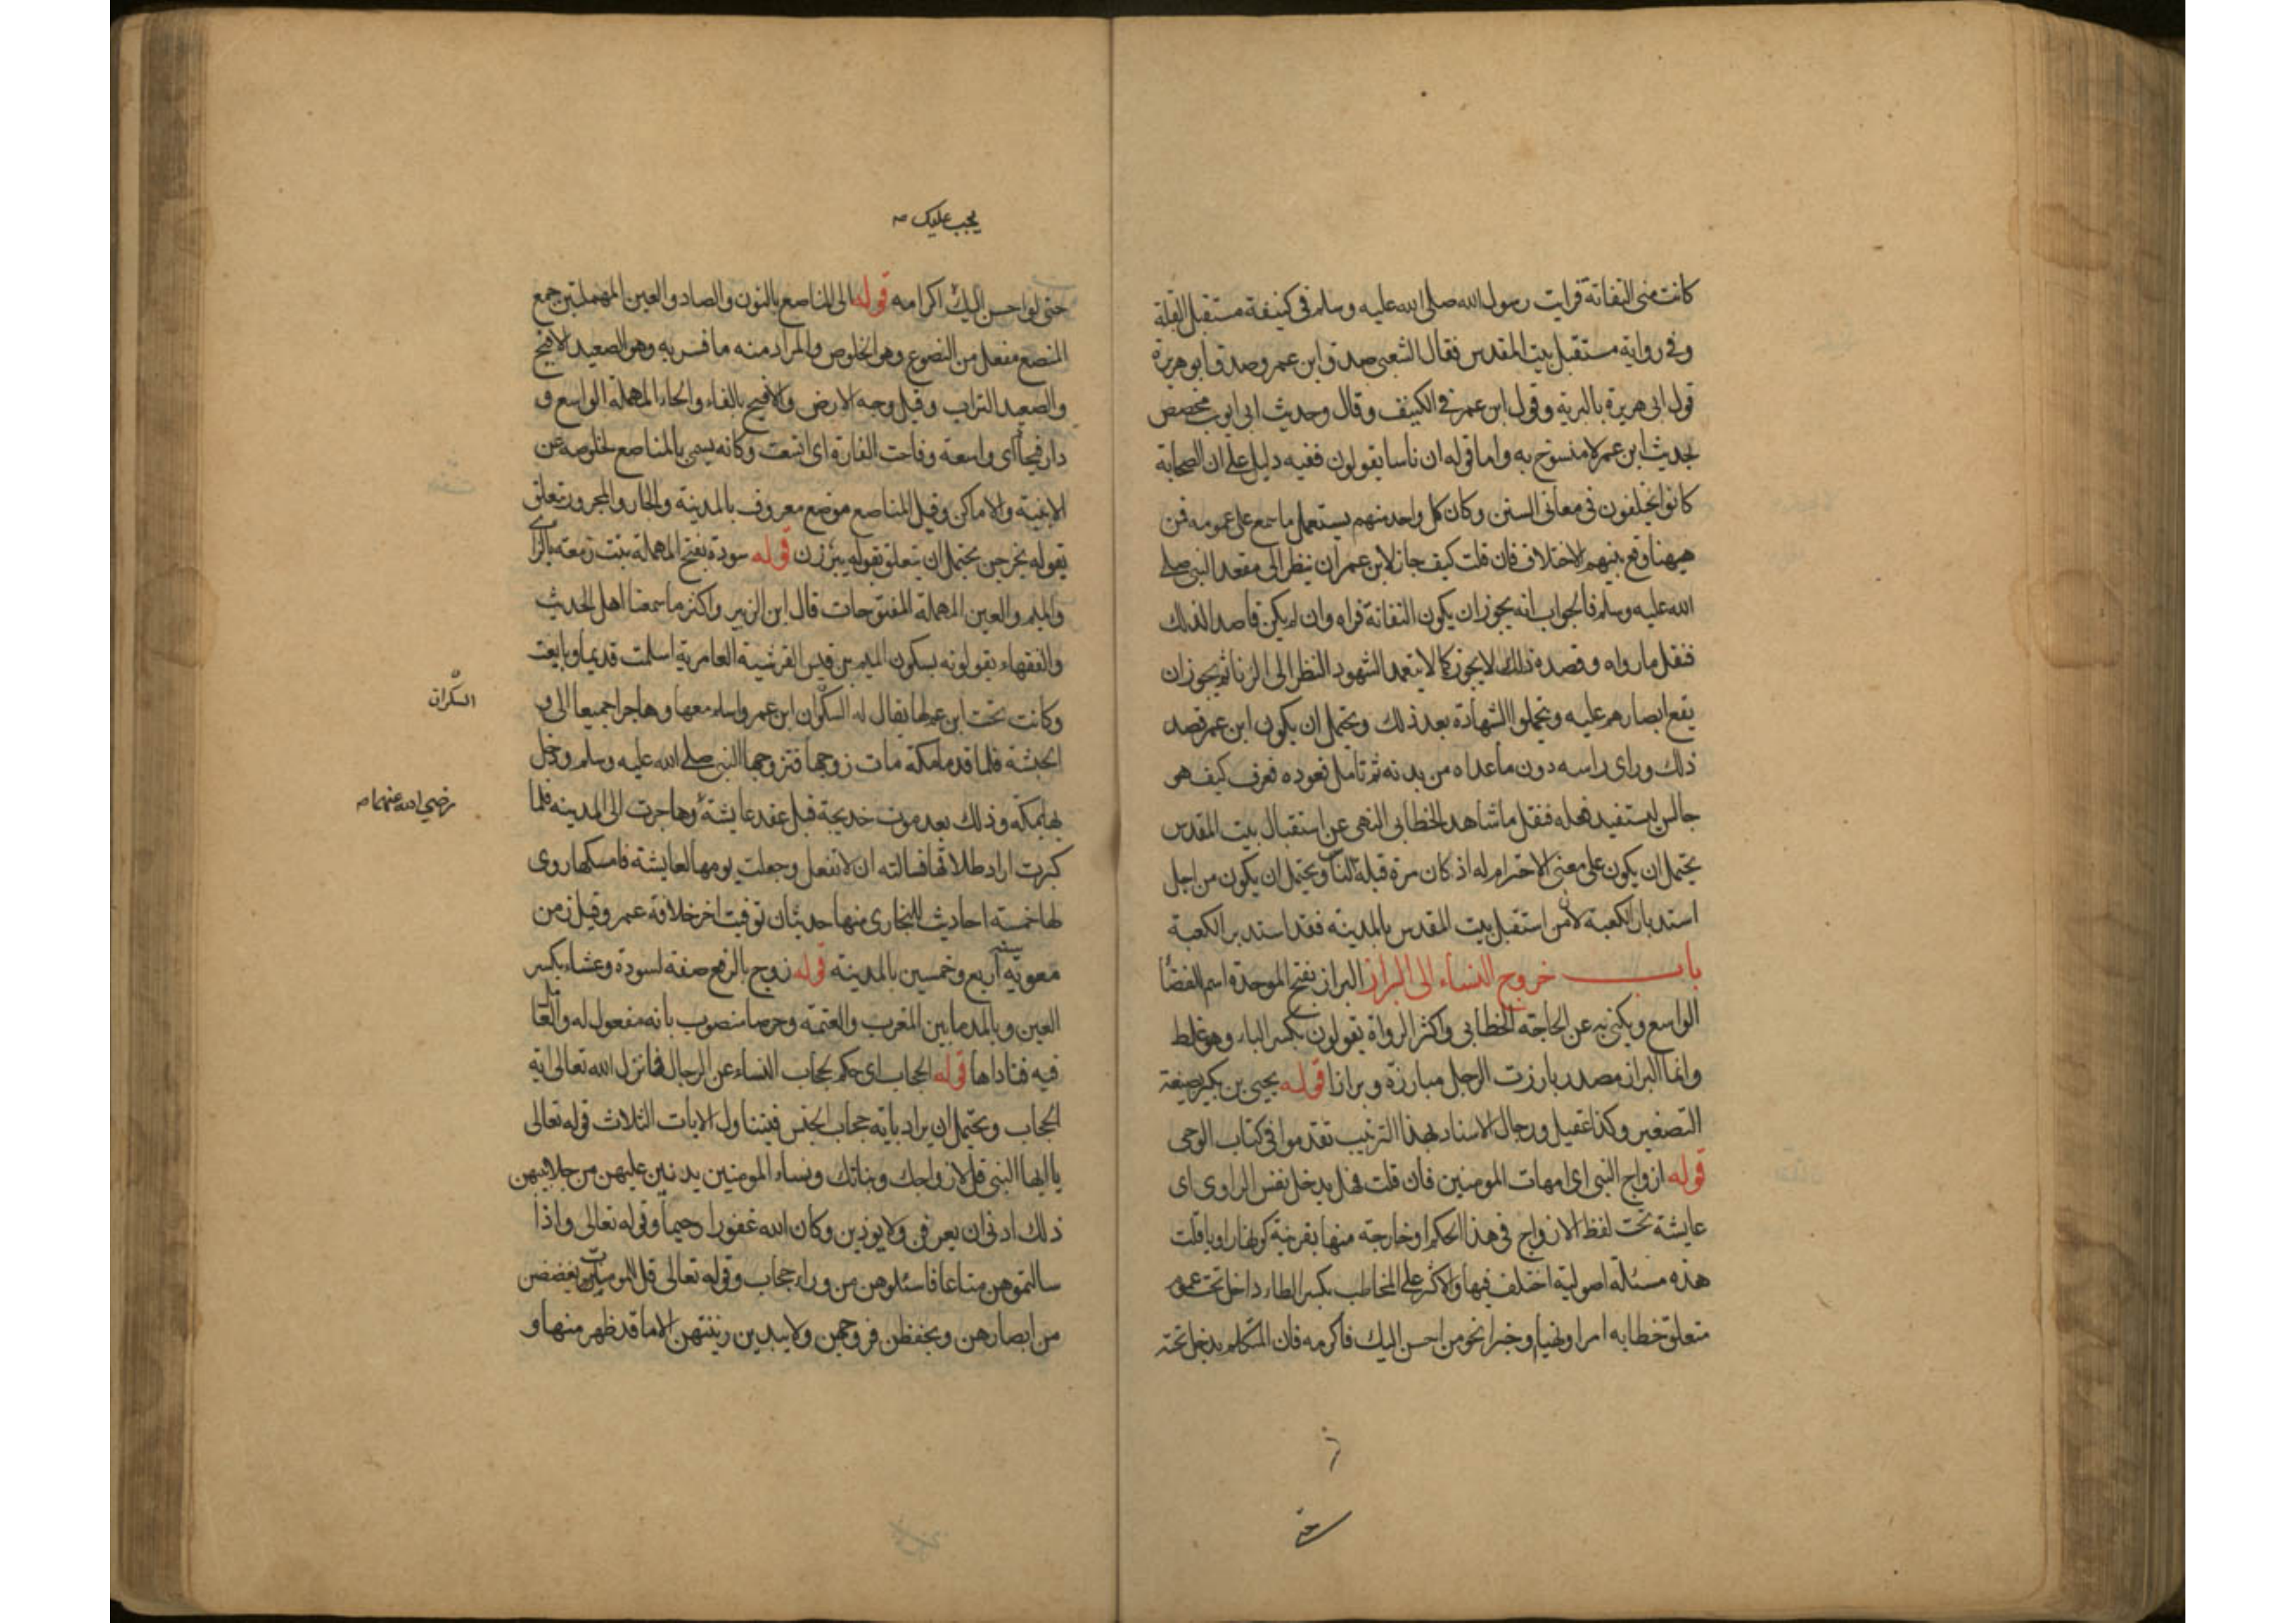 كانت مني التفاتة فرايت رسول الله صلى الله عليه وسلم في كنيفة مستقبل القبلة
وفي رواية مستقبل بيت المقدس فقال الشعبي صدق ابن عمر وصدق ابو هريرة
قول ابي هريرة بالبرية وقول ابن عمر في الكنيف وقال وحديث ابي ايوب مخصص
لحديث ابن عمر لا منسوخ به واما قوله ان ناسا يقولون ففيه دليل على ان الصحابة
كانوا يختلفون في معاني السنن وكان كل واحد منهم يستعمل ما سمع على عمومه فمن
هيهنا وقع بينهم الاختلاف فان قلت كيف جاز لابن عمر ان ينظر الى مقعد النبي صلى
الله عليه وسلم فالجواب انه يجوز ان يكون التفاتة فراه وان لم يكن قاصدا لذلك
فنقل ما رواه وقصده ذلك لا يجوز كما لا يتعمد الشهود النظر الى الزنا ثم يجوز ان
يقع ابصارهم عليه ويحملوا الشهادة بعد ذلك ويحتمل ان يكون ابن عمر قصد
ذلك وراى راسه دون ما عداه من بدنه ثم تامل قعوده فعرف كيف هو
جالس ليستفيد فعله فنقل ما شاهد الخطابي النهي عن استقبال بيت المقدس
يحتمل ان يكون على معنى الاحترام له اذ كان مرة قبلة لنا ويحتمل ان يكون من اجل
استدبار الكعبة لان من استقبل بيت المقدس بالمدينة فقد استدبر الكعبة
باب خروج النساء الى البراز البراز بفتح الموحدة اسم الفضا
الواسع ويكنى به عن الحاجة الخطابي واكثر الرواة يقولون بكسر الباء وهو غلط
وانما البراز مصدر بارزت الرجل مبارزة وبرازا قوله يحيى بن بكير بصيغة
التصغير وكذا عقيل ورجال الاسناد بهذا الترتيب تقدموا في كتاب الوحي
قوله ازواج النبي اى امهات المومنين فان قلت فهل يدخل نفس الراوى اى
عايشة تحت لفظ الازواج في هذا الحكم او خارجة منها بقرينة كونها راويا قلت
هذه مسئلة اصولية اختلف فيها والاكثر على المخاطب بكسر الطاء داخل تحت عموم
متعلق خطابه امرا ونهيا وخبرا نحو من احسن اليك فاكرمه فان المتكلم يدخل تحته
يجب عليك
حتى لو احسن اليك اكرامه قوله الى المناصع بالنون والصاد والعين المهملتين جمع
المنصع مفعل من النصوع وهو الخلوص والمراد منه ما فسر به وهو الصعيد الافيح
والصعيد التراب وقيل وجه الارض والافيح بالفاء والحاء المهملة الواسع و
دار فيحا اى واسعة وفاحت الغارة اى اتسعت وكانه يسمى بالمناصع لخلوصه عن
الابنية والاماكن وقيل المناصع موضع معروف بالمدينة والجار والمجرور يتعلق
بقوله يخرجن يحتمل ان يتعلق بقوله يبرزن قوله سودة بفتح المهملة بنت زمعة بالزاى
والميم والعين المهملة المفتوحات قال ابن الزبير واكثر ما سمعنا اهل الحديث
والفقهاء يقولونه بسكون الميم بن قيس القرشية العامرية اسلمت قديما وبايعت
وكانت تحت ابن عم لها يقال له السكران ابن عمر واسلم معها وهاجرا جميعا الى
السكران
الحبشة فلما قدما مكة مات زوجها فتزوجها النبي صلى الله عليه وسلم ودخل
بها بمكة وذلك بعد موت خديجة قبل عقد عايشة وهاجرت الى المدينة فلما
رضي الله عنهما
كبرت اراد طلاقها فسالته ان لا تفعل وجعلت يومها لعايشة فامسكها روى
لها خمسة احاديث للبخارى منها حديثان توفيت اخر خلافة عمر وقيل زمن
معوية سنة اربع وخمسين بالمدينة قوله زوج بالرفع صفة لسودة وعشاء بكسر
العين وبالمد ما بين المغرب والعتمة وحرصا منصوب بانه مفعول له والعامل
فيه فناداها قوله الحجاب اى حكم حجاب النساء عن الرجال فانزل الله تعالى اية
الحجاب ويحتمل ان يراد باية حجاب الجنس فيتناول الايات الثلاث قوله تعالى
يا ايها النبي قل لازواجك وبناتك ونساء المومنين يدنين عليهن من جلابيبهن
ذلك ادنى ان يعرفن ولا يوذين وكان الله غفورا رحيما وقوله تعالى واذا
سالتموهن متاعا فاسئلوهن من وراء حجاب وقوله تعالى قل للمومنات يغضضن
من ابصارهن ويحفظن فروجهن ولا يبدين زينتهن الا ما قد ظهر منها و